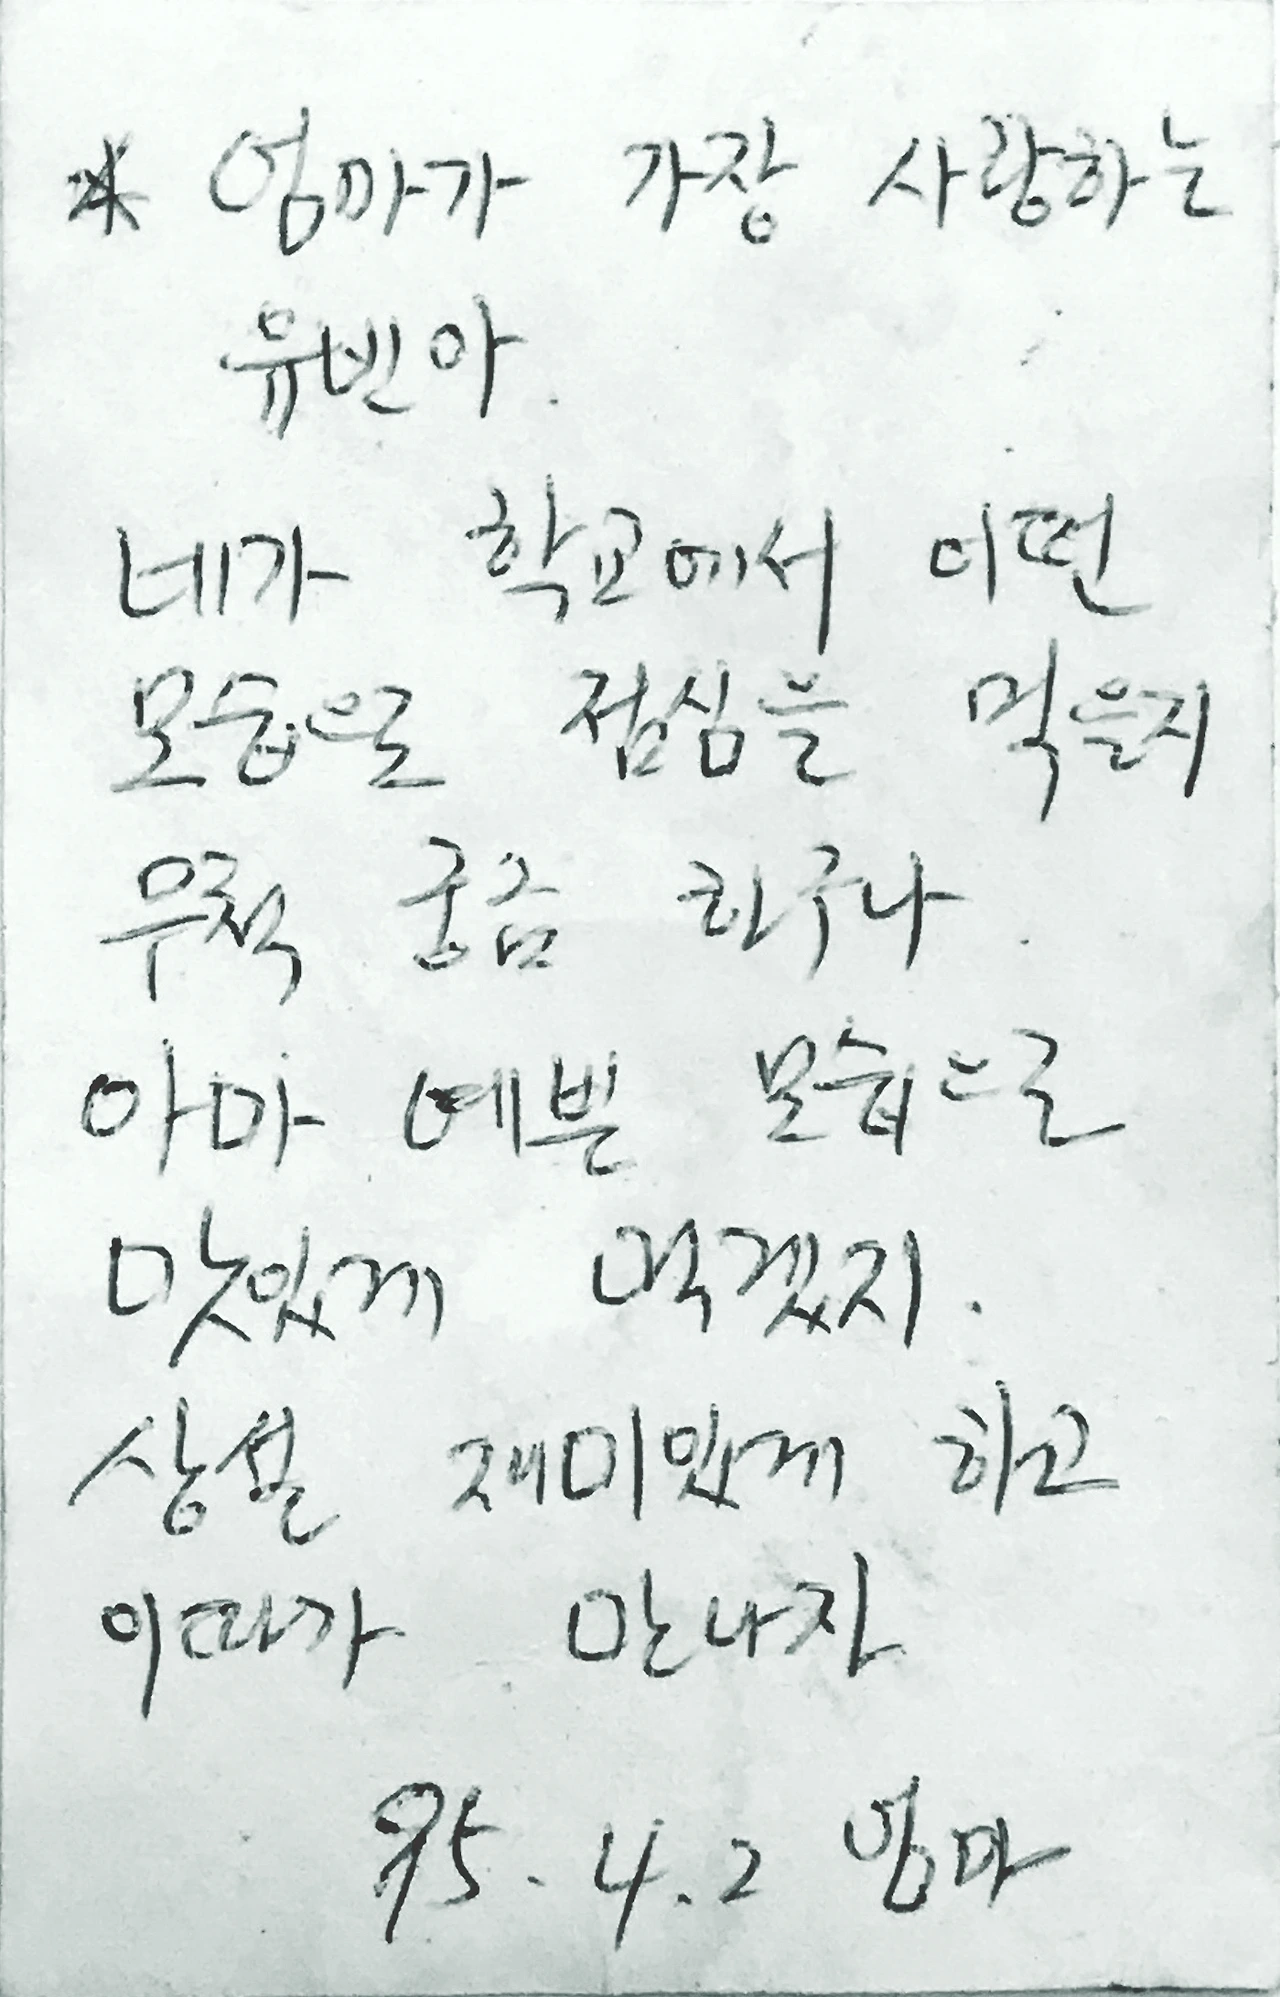 * 엄마가 가장 사랑하는
유빈아.
네가 학교에서 어떤
모습으로 점심을 먹을지
무척 궁금 하구나.
아마 예쁜 모습으로
맛있게 먹겠지.
상설 재미있게 하고
이따가 만나자
95.4.2 엄마